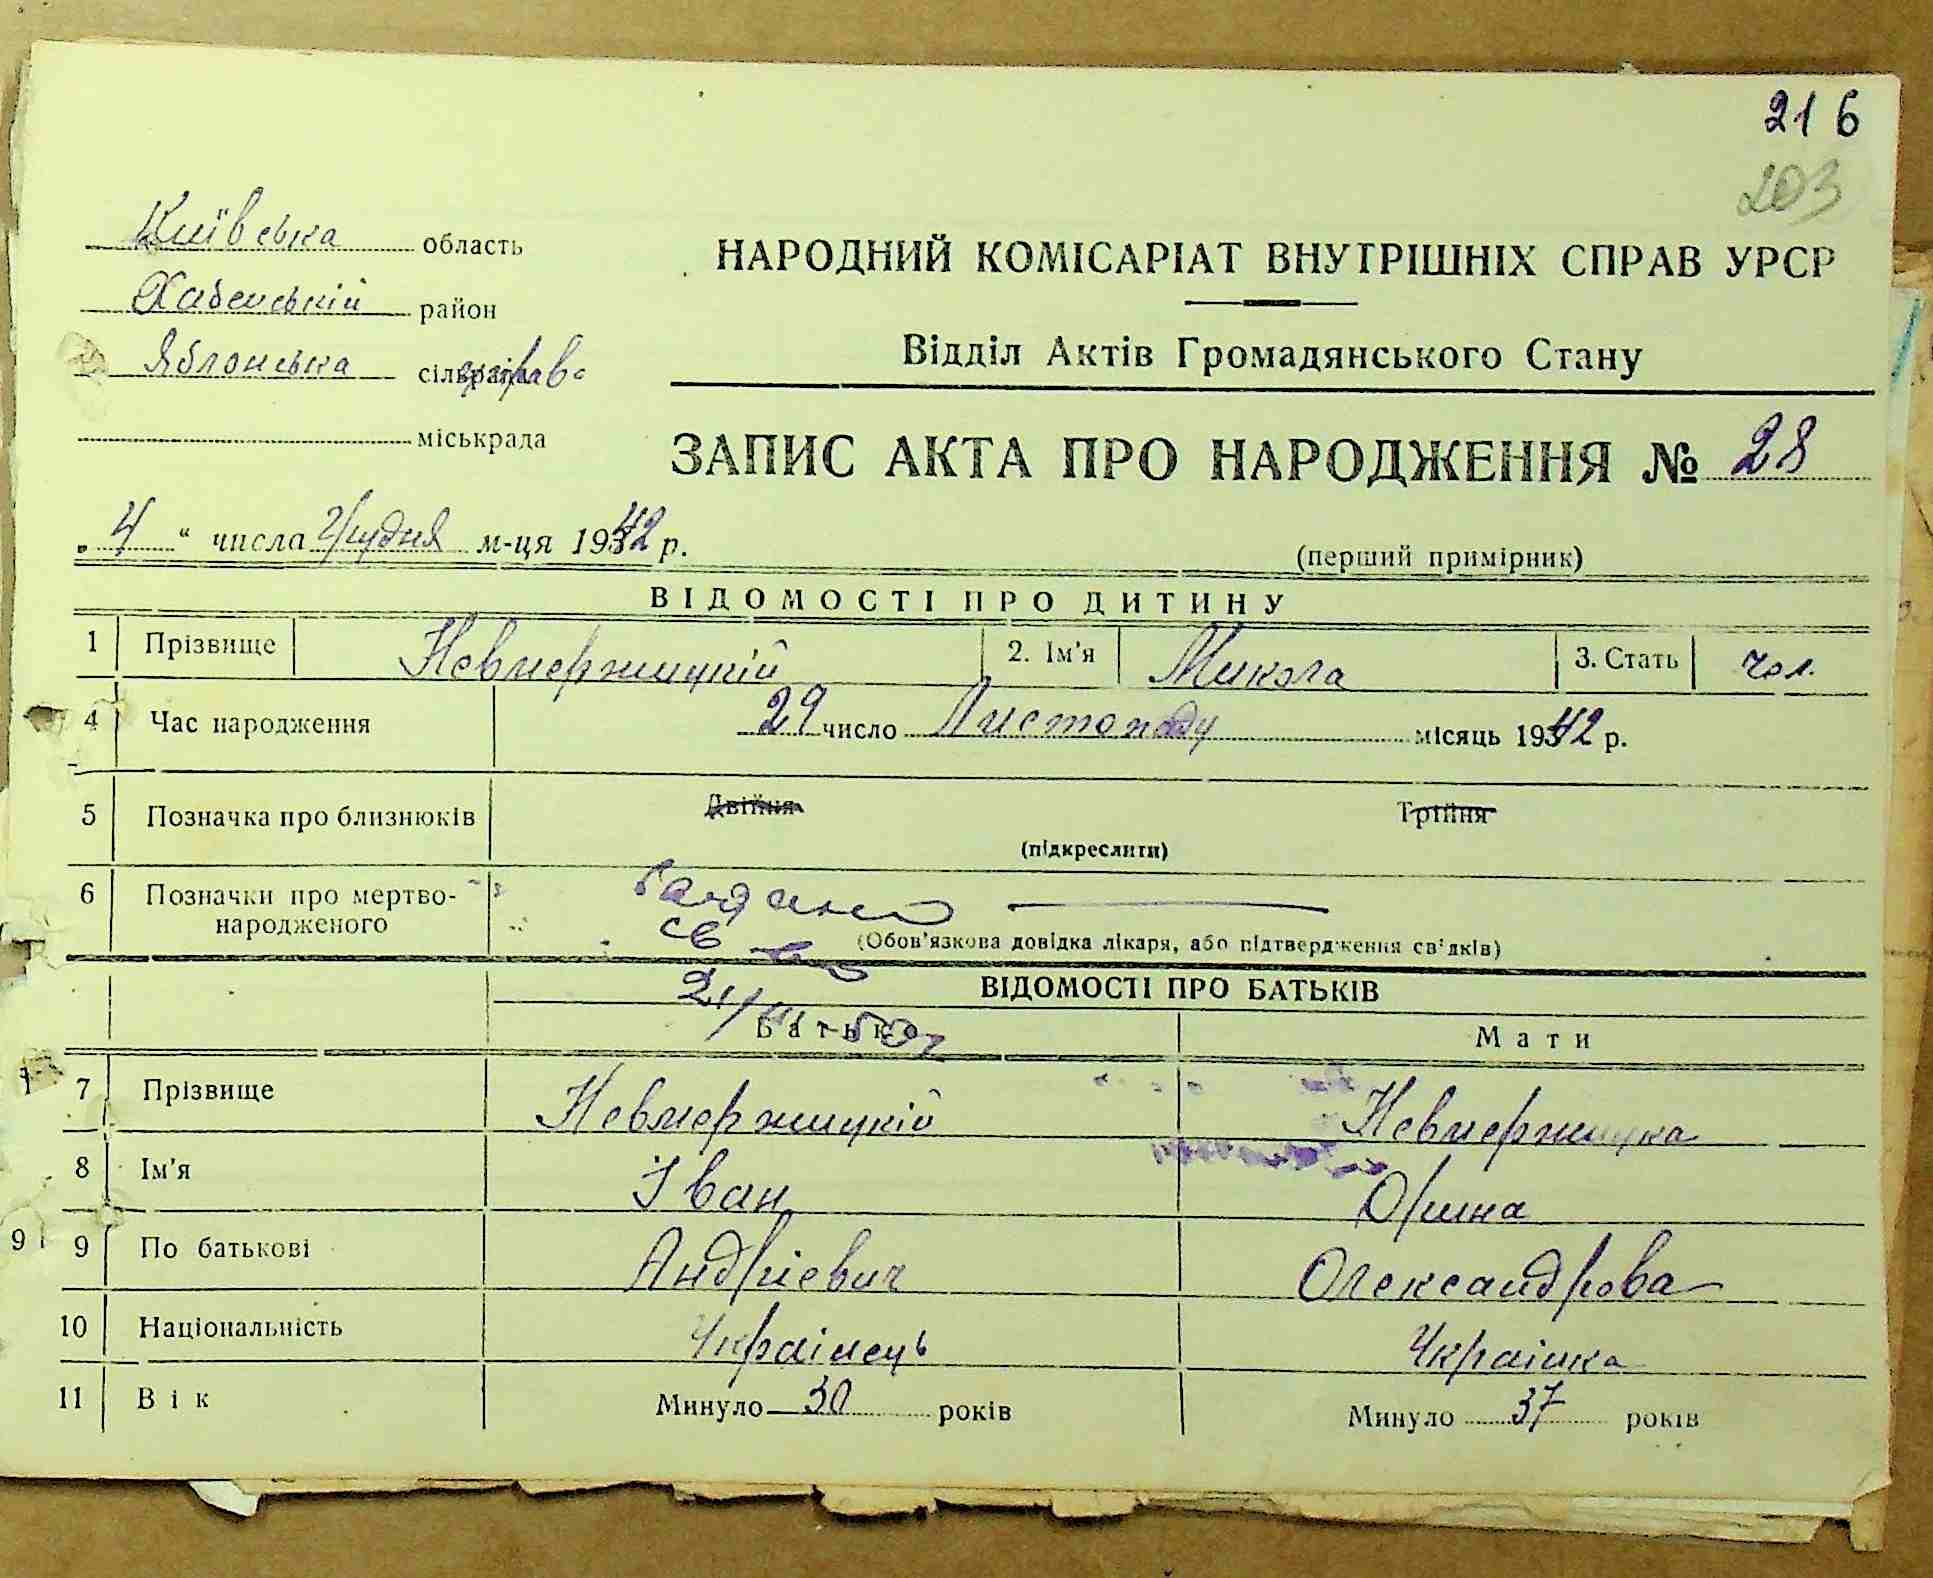 216
203
Київська область
Хабенський район
Яблонська сільрада управ.
міськрада
НАРОДНИЙ КОМІСАРІАТ ВНУТРІШНІХ СПРАВ УРСР
Відділ Актів Громадянського Стану
ЗАПИС АКТА ПРО НАРОДЖЕННЯ № 28
„ 4 “ числа Грудня м-ця 1942 р.
(перший примірник)
ВІДОМОСТІ ПРО ДИТИНУ
1 Прізвище Невмержицкій 2. Ім'я Микола 3. Стать чол.
4 Час народження 29 число Листопаду місяць 1942 р.
5 Позначка про близнюків Двійня Трійня
(підкреслити)
6 Позначки про мертво-
народженого
(Обов'язкова довідка лікаря, або підтвердження свідків)
ВІДОМОСТІ ПРО БАТЬКІВ
Батько Мати
7 Прізвище Невмержицкій Невмержицка
8 Ім'я Іван Орина
9 9 По батькові Андрієвич Олександрова
10 Національність Українець Українка
11 Вік Минуло 30 років Минуло 37 років